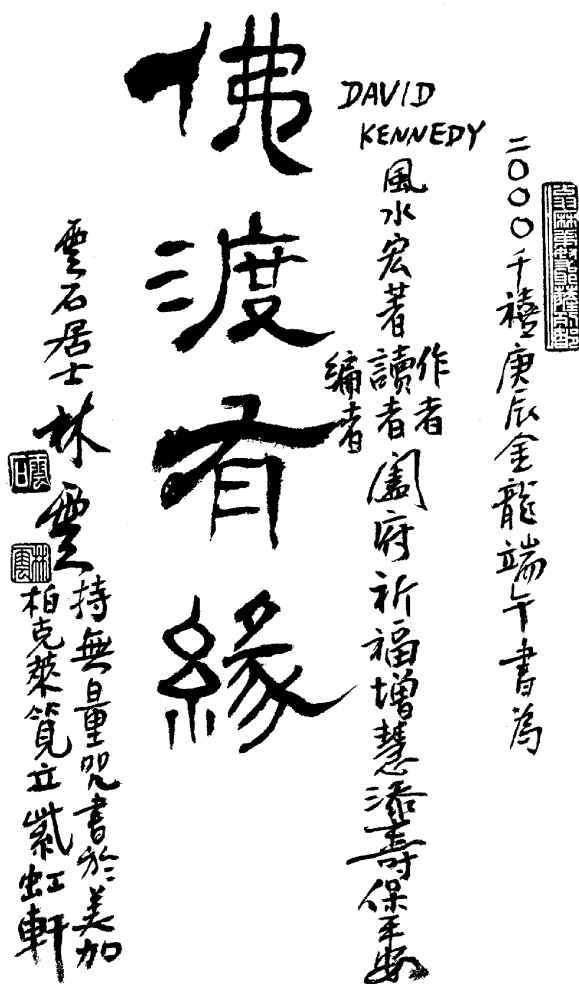 二〇〇〇千禧庚辰金龍端午書為
DAVID
KENNEDY
風水宏著
作者
讀者
編者
闔府祈福增慧添壽保平安
佛渡有緣
雲石居士
林雲
持無量咒書於美加
柏克萊筧立紫虹軒
雲石
林雲